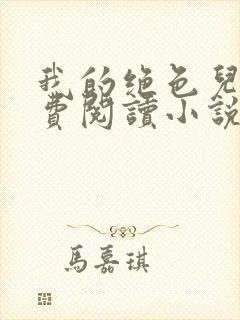 我的绝色兒
費閱讀小說
馬嘉琪